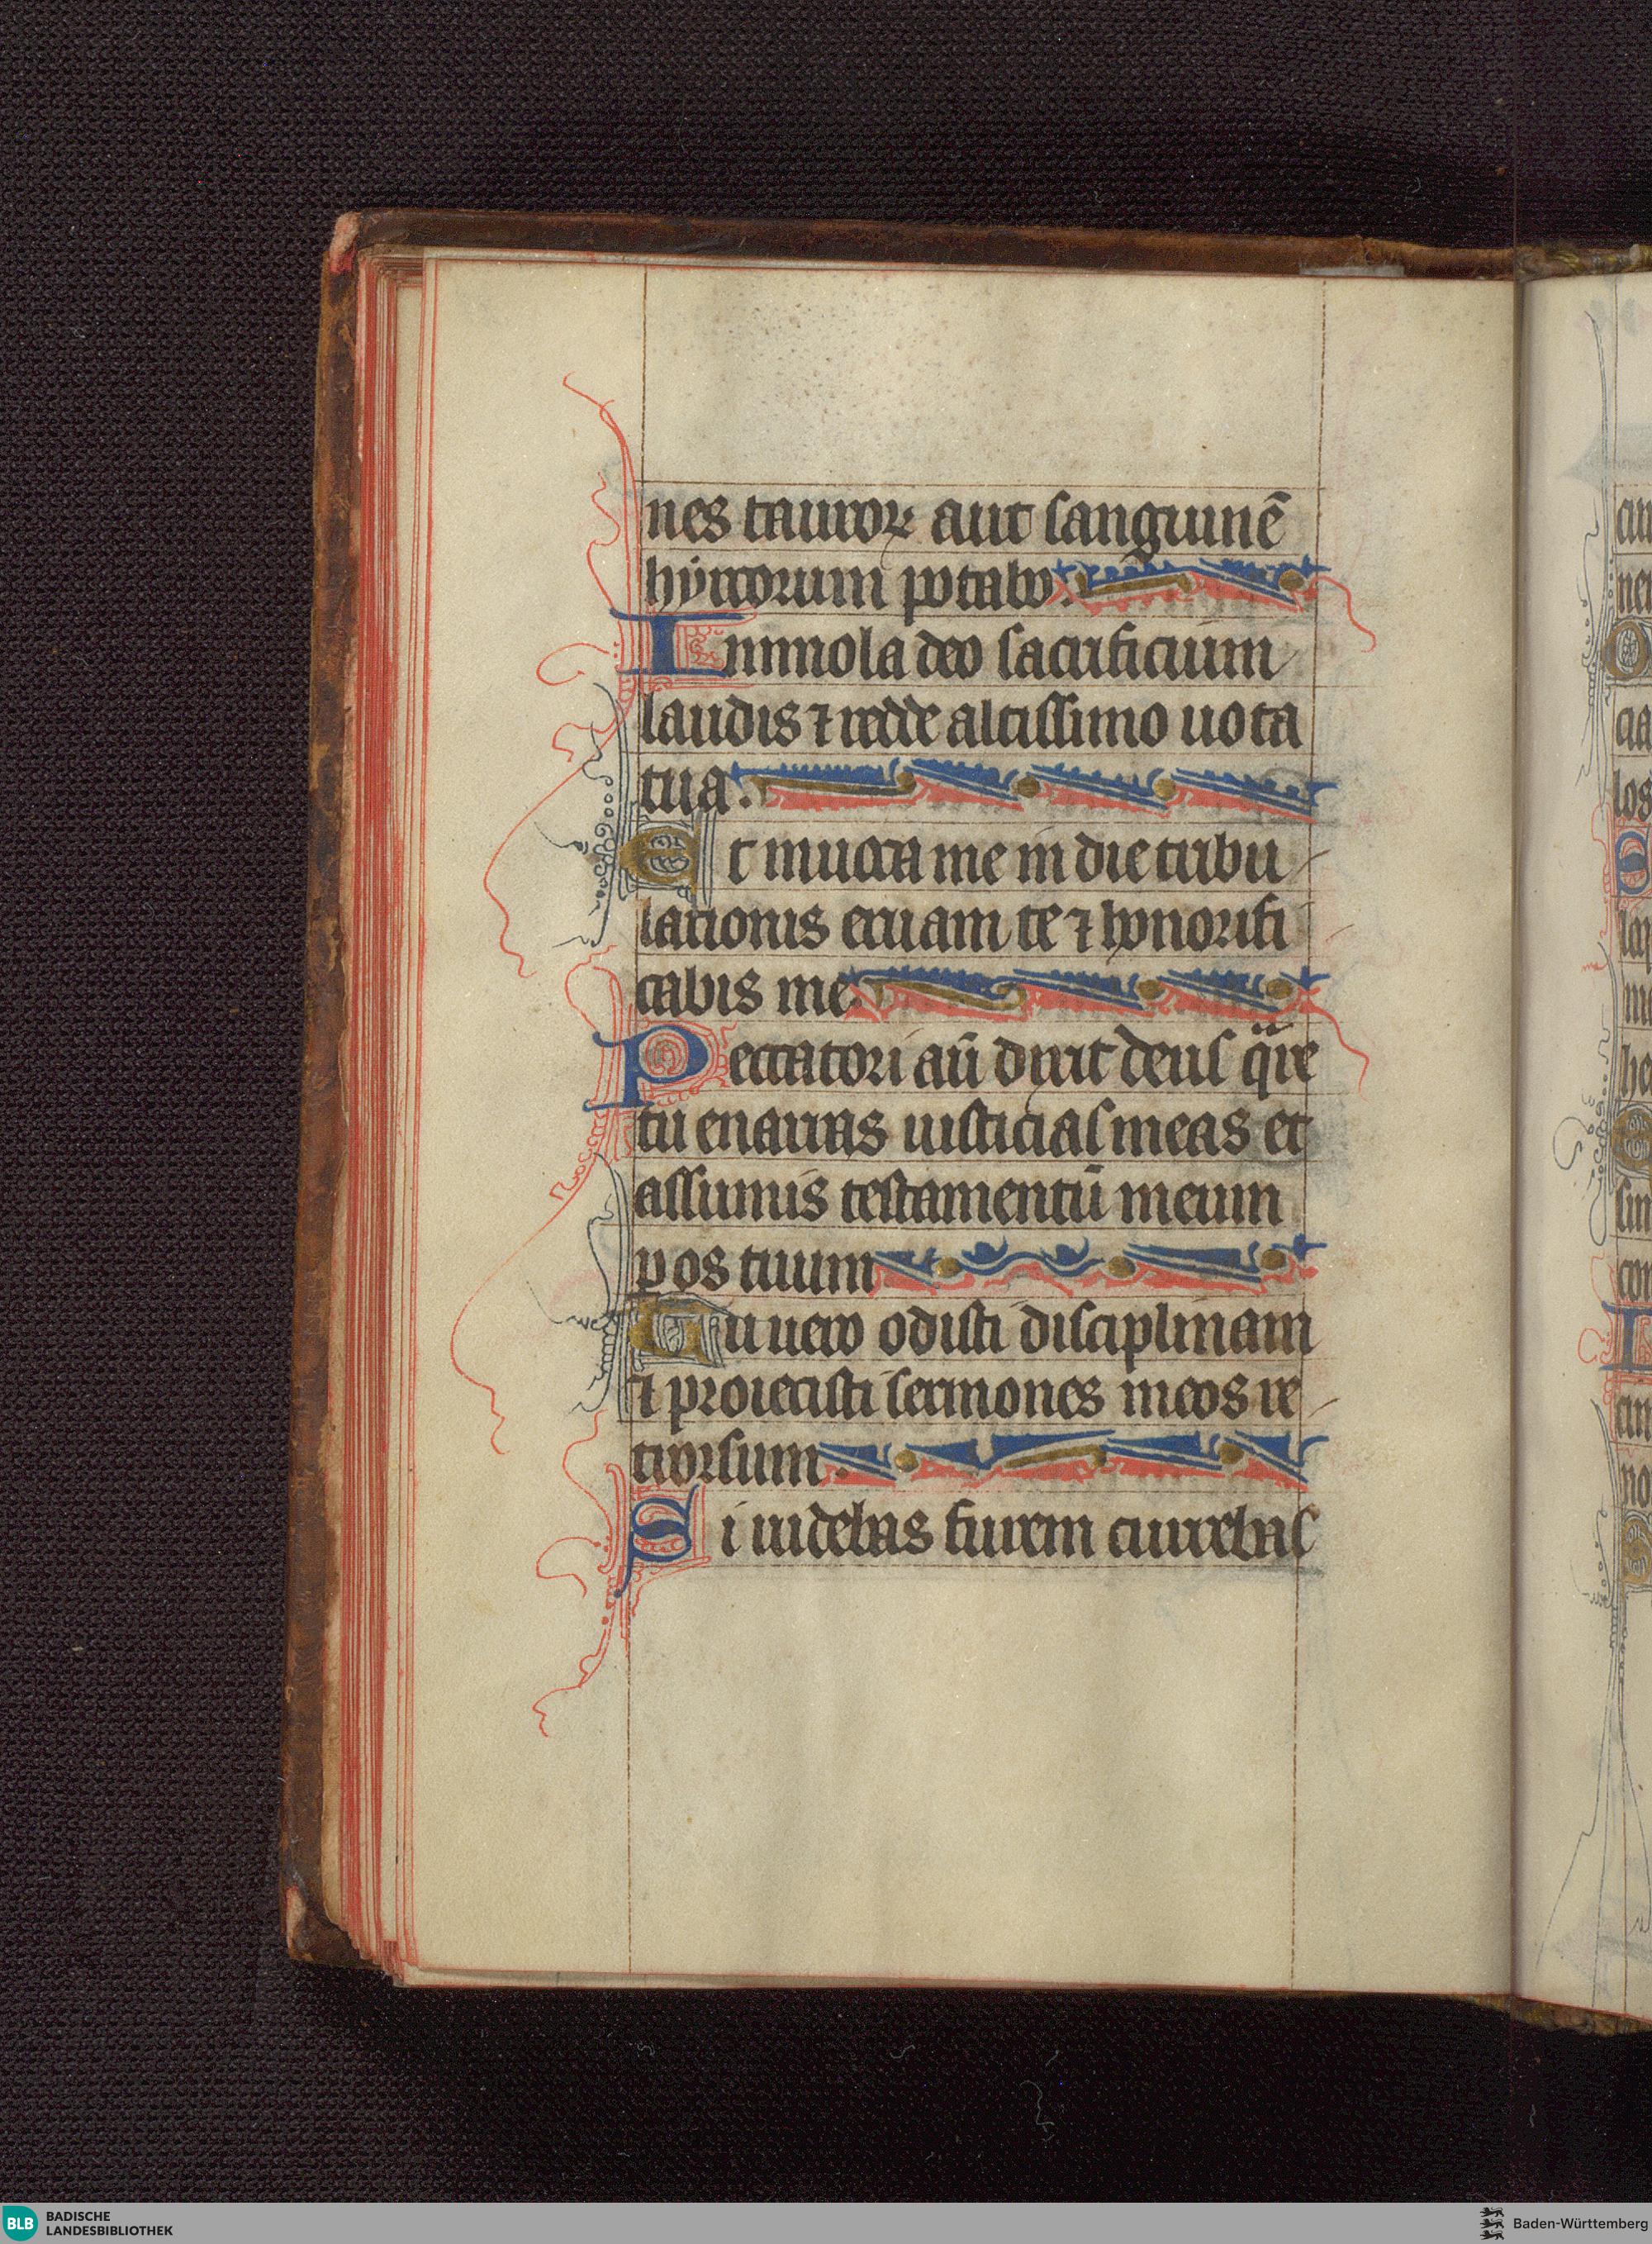 nes tauroꝝ aut sanguinē
hyrcorum potabo.
Immola deo sacrificium
laudis ⁊ redde altissimo uota
tua.
Et inuoca me in die tribu
lationis eruam te ⁊ honorifi
cabis me.
Peccatori aū dixit deus q̄re
tu enarras iusticias meas et
assumis testamentū meum
p os tuum
Tu uero odisti disciplinam
⁊ proiecisti sermones meos re
trorsum.
Si uidebas furem currebas
BLB BADISCHE
LANDESBIBLIOTHEK
Baden-Württemberg